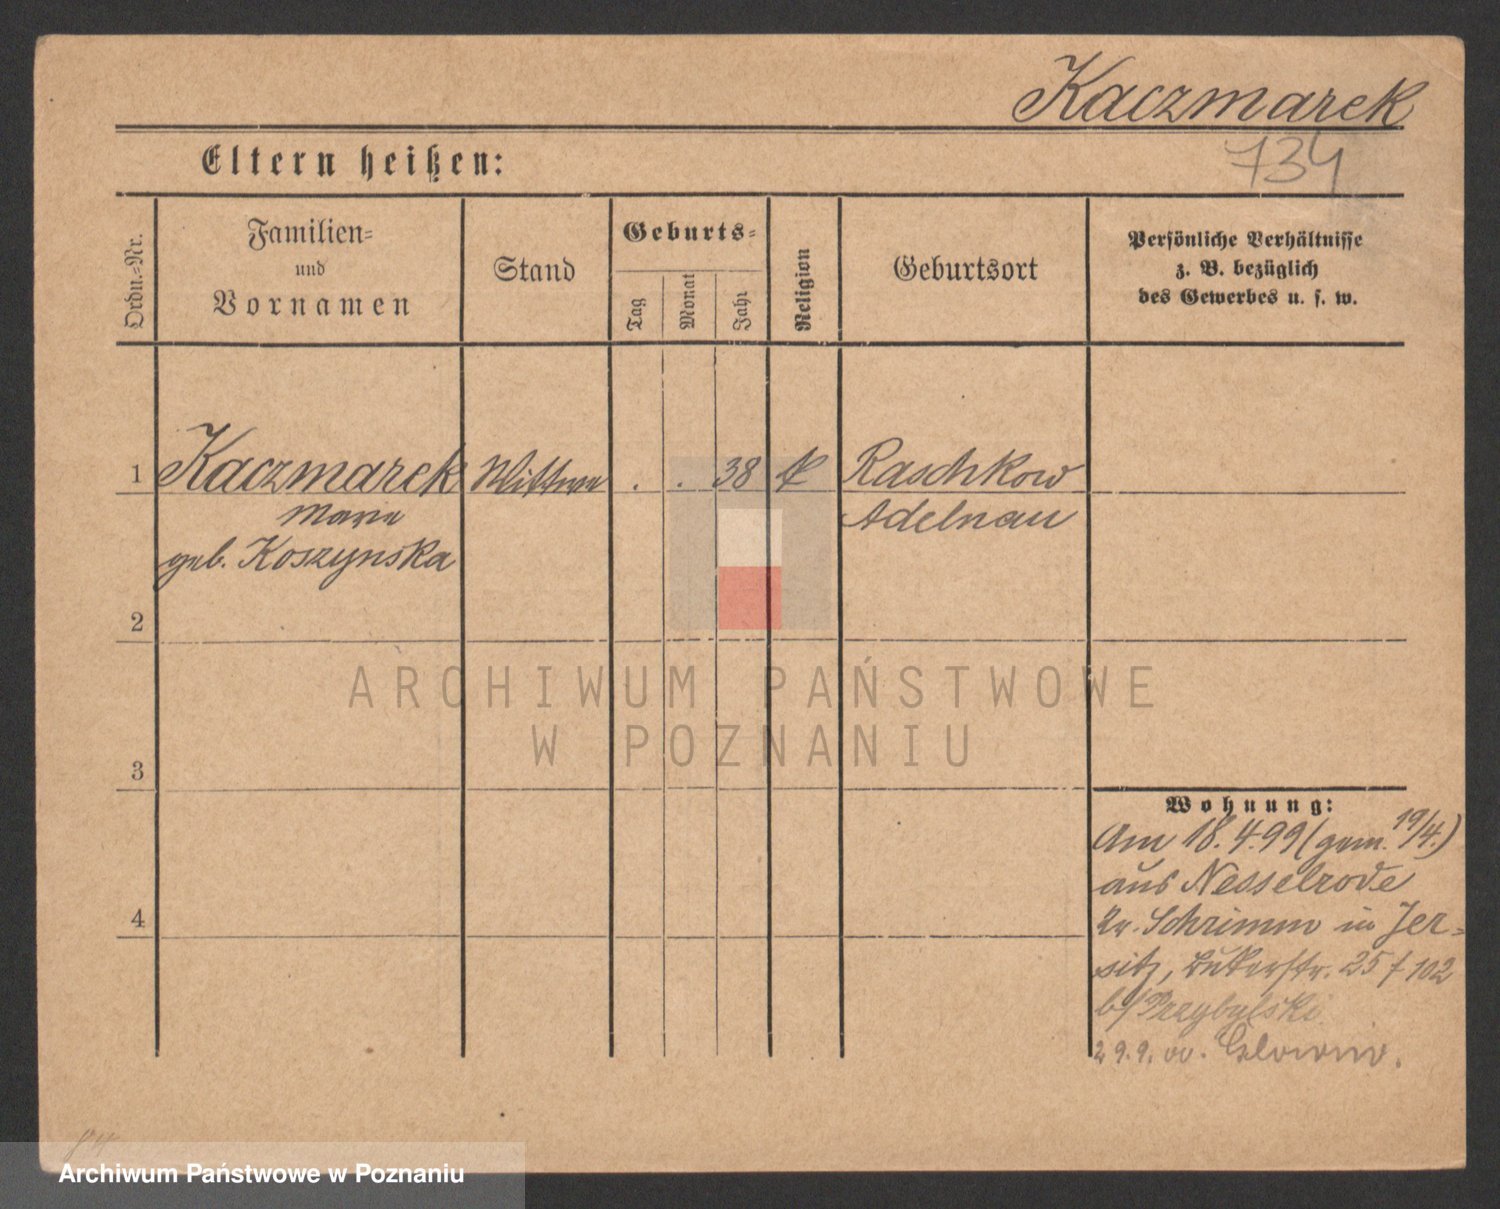 Kaczmarek
734
Eltern heißen:
Ordn.-Nr.
Familien-
und
Vornamen
Stand
Geburts-
Tag
Monat
Jahr
Religion
Geburtsort
Persönliche Verhältnisse
z. B. bezüglich
des Gewerbes u. s. w.
1 Kaczmarek Wittwe . . 38 k Raschkow
Marie Adelnau
geb. Koszynska
2
ARCHIWUM PAŃSTWOWE
W POZNANIU
3
Wohnung:
Am 18.4.99 (gem. 19/4.)
aus Nesselrode
Kr. Schrimm in Jer-
sitz, 25 f 102
b/Przybylski
29.9.
4
Archiwum Państwowe w Poznaniu